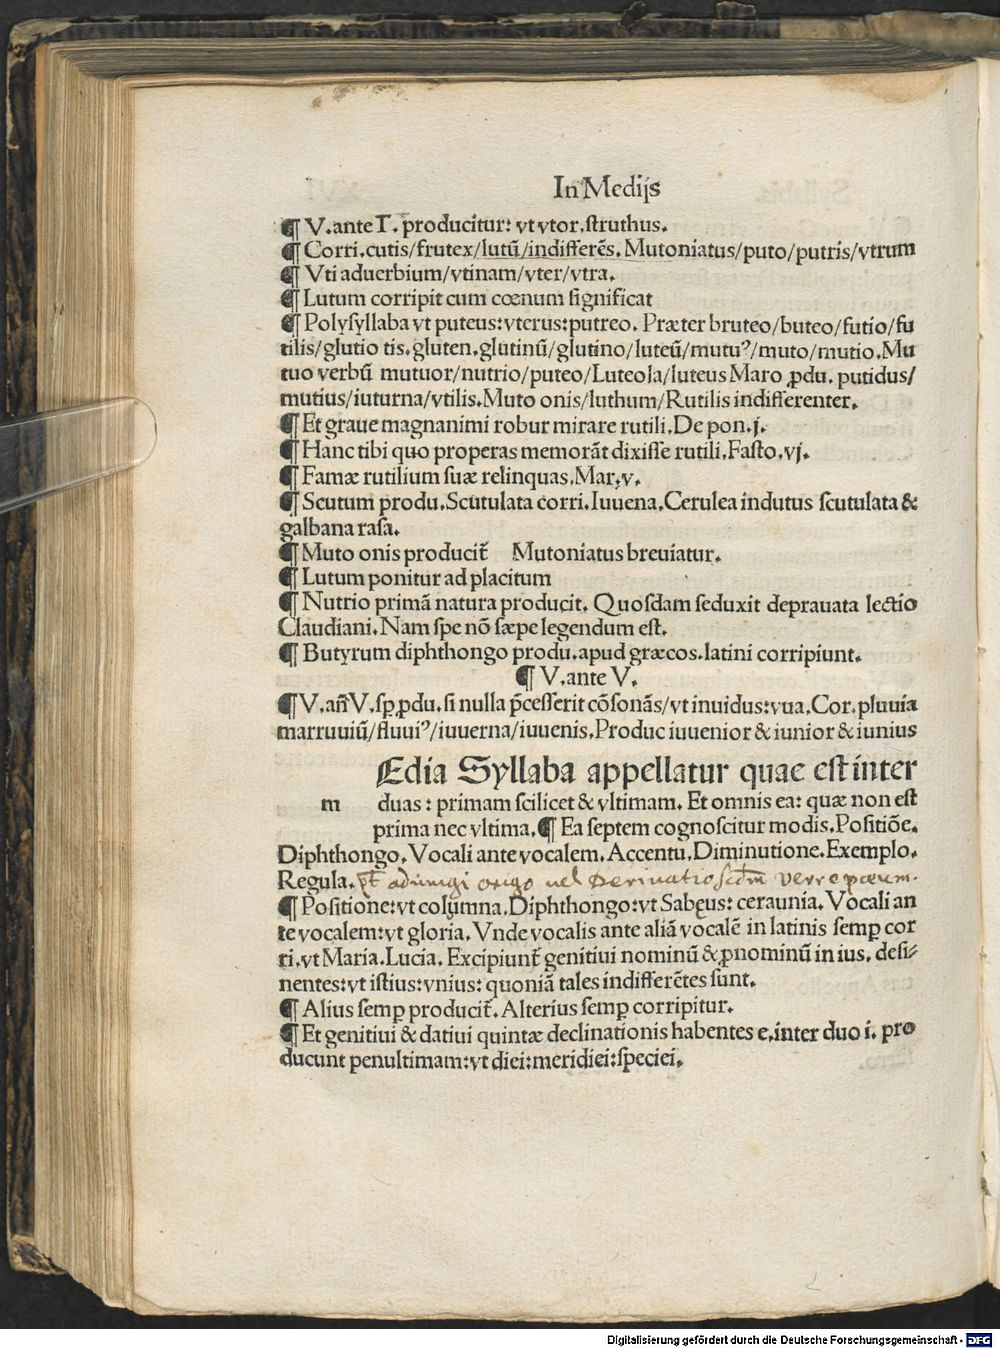 In Medijs
¶ V.ante T. producitur: vt vtor.struthus.
¶ Corri.cutis/frutex/lutū/indifferēs. Mutoniatus/puto/putris/vtrum
¶ Vti aduerbium/vtinam/vter/vtra.
¶ Lutum corripit cum cœnum significat
¶ Polysyllaba vt puteus:vterus:putreo. Præter bruteo/buteo/futio/fu
tilis/glutio tis.gluten.glutinū/glutino/luteū/mutuꝰ/muto/mutio.Mu
tuo verbū mutuor/nutrio/puteo/Luteola/luteus Maro ꝓdu. putidus/
mutius/iuturna/vtilis.Muto onis/luthum/Rutilis indifferenter.
¶ Et graue magnanimi robur mirare rutili.De pon.j.
¶ Hanc tibi quo properas memorāt dixisse rutili.Fasto.vj.
¶ Famæ rutilium suæ relinquas.Mar.v.
¶ Scutum produ.Scutulata corri.Iuuena.Cerulea indutus scutulata &
galbana rasa.
¶ Muto onis producit̃ Mutoniatus breuiatur.
¶ Lutum ponitur ad placitum
¶ Nutrio primā natura producit. Quosdam seduxit deprauata lectio
Claudiani.Nam spe nō sæpe legendum est.
¶ Butyrum diphthongo produ.apud græcos.latini corripiunt.
¶ V.ante V.
¶ V.añ V.sꝑ ꝓdu.si nulla p̄cesserit cōsonās/vt inuidus:vua.Cor.pluuia
marruuiū/fluuiꝰ/iuuerna/iuuenis.Produc iuuenior & iunior & iunius
Edia Syllaba appellatur quae est inter
m duas: primam scilicet & vltimam. Et omnis ea: quæ non est
prima nec vltima. ¶ Ea septem cognoscitur modis.Positiōe.
Diphthongo.Vocali ante vocalem.Accentu.Diminutione.Exemplo.
Regula. adiungi origo uel Derivatio
¶ Positione:vt columna.Diphthongo:vt Sabęus: ceraunia. Vocali an
te vocalem:vt gloria. Vnde vocalis ante aliā vocalē in latinis semꝑ cor
ri.vt Maria.Lucia. Excipiunt̃ genitiui nominū & ꝓnominū in ius. desi⸗
nentes:vt istius:vnius: quoniā tales indifferētes sunt.
¶ Alius semꝑ producit̃.Alterius semꝑ corripitur.
¶ Et genitiui & datiui quintæ declinationis habentes e.inter duo i. pro
ducunt penultimam:vt diei:meridiei:speciei.
Digitalisierung gefördert durch die Deutsche Forschungsgemeinschaft - DFG